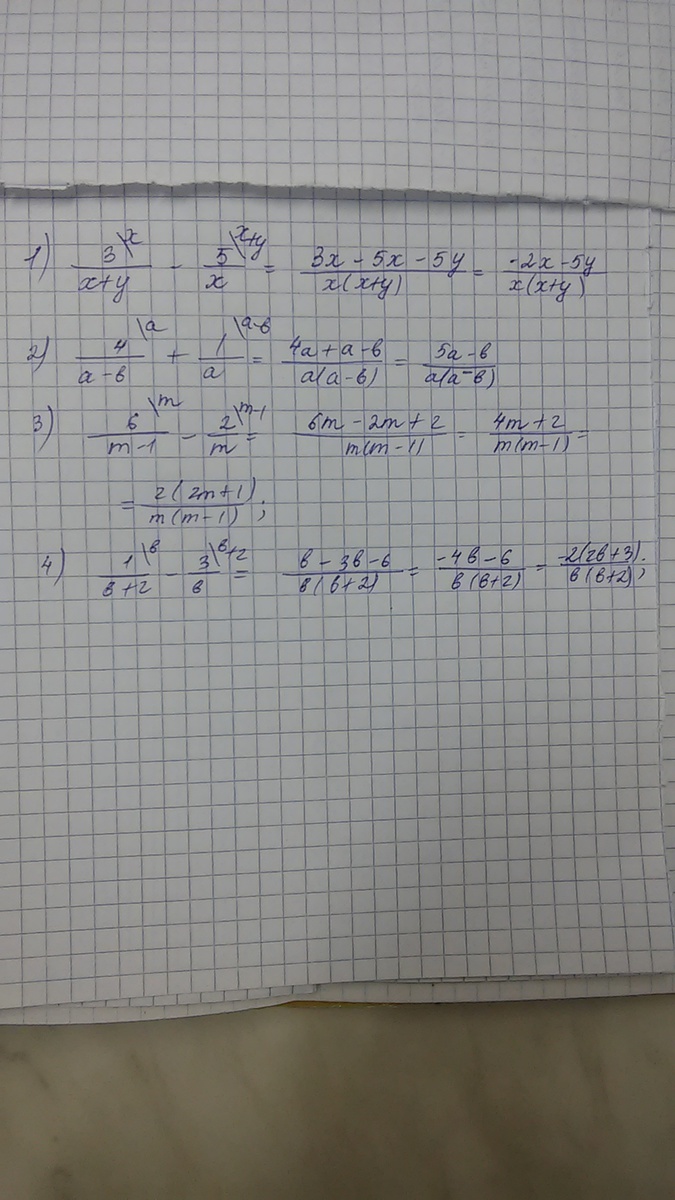 1) 3\x/(x+y) - 5\x+y/x = (3x - 5x - 5y)/(x(x+y)) = (-2x-5y)/(x(x+y))
2) 4\a/(a-в) + 1\a-в/a = (4a+a-в)/(a(a-в)) = (5a-в)/(a(a-в))
3) 6\m/(m-1) - 2\m-1/m = (6m-2m+2)/(m(m-1)) = (4m+2)/(m(m-1)) =
= 2(2m+1)/(m(m-1));
4) 1\в/(в+2) - 3\в+2/в = (в-3в-6)/(в(в+2)) = (-4в-6)/(в(в+2)) = -2(2в+3)/(в(в+2));